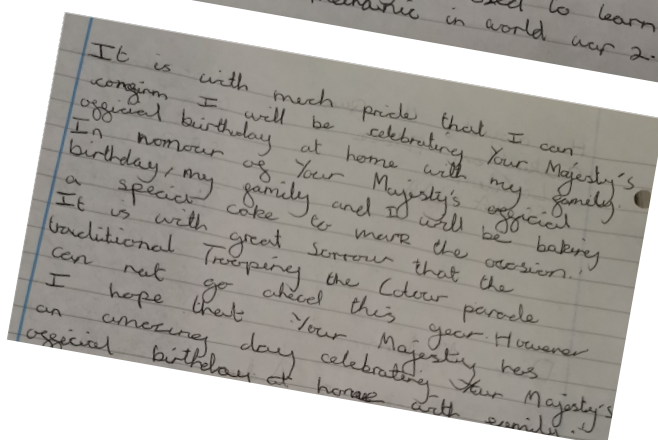 to learn
mechanic in world war 2.
It is with much pride that I can
confirm I will be celebrating Your Majesty's
official birthday at home with my family.
In honour of Your Majesty's official
birthday, my family and I will be baking
a special cake to mark the occasion.
It is with great sorrow that the
traditional Trooping the Colour parade
can not go ahead this year. However
I hope that Your Majesty has
an amazing day celebrating Your Majesty's
official birthday at home with family.